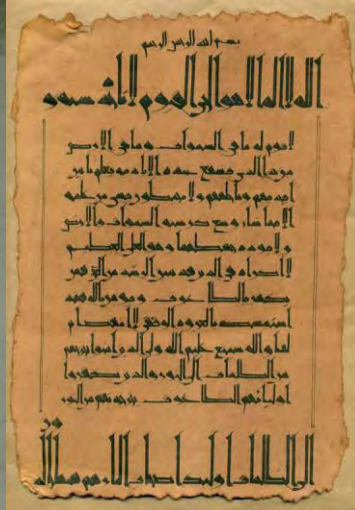 بسم الله الرحمن الرحيم
الله لا اله الا هو الحي القيوم لا تاخذه سنه و
لا نوم له ما في السموات وما في الارض
من ذا الذي يشفع عنده الا باذنه يعلم ما بين
ايديهم وما خلفهم ولا يحيطون بشي من علمه
الا بما شا وسع كرسيه السموات والارض
ولا يوده حفظهما وهو العلي العظيم
لا اكراه في الدين قد تبين الرشد من الغي فمن
يكفر بالطاغوت ويومن بالله فقد
استمسك بالعروه الوثقى لا انفصام
لها والله سميع عليم الله ولي الذين امنوا يخرجهم
من الظلمات الى النور والذين كفروا
اولياهم الطاغوت يخرجونهم من النور
الى الظلمات اوليك اصحاب النار هم فيها خالدون